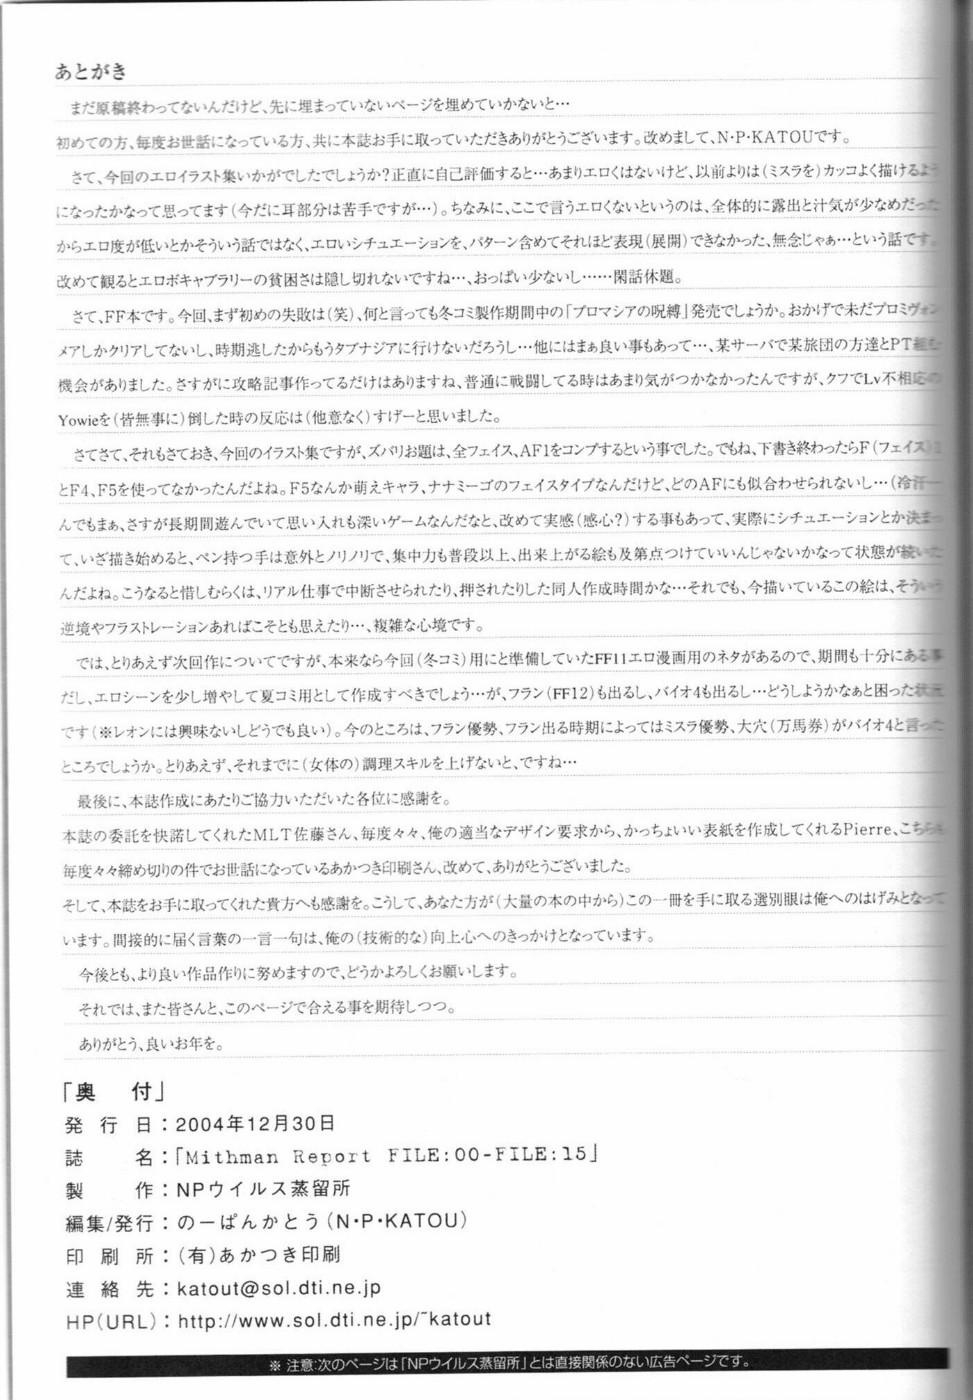 あとがき
まだ原稿終わってないんだけど、先に埋まっていないページを埋めていかないと…
初めての方、毎度お世話になっている方、共に本誌お手に取っていただきありがとうございます。改めまして、N・P・KATOUです。
さて、今回のエロイラスト集いかがでしたでしょうか?正直に自己評価すると…あまりエロくはないけど、以前よりは(ミスラを)カッコよく描けるよう
になったかなって思ってます(今だに耳部分は苦手ですが…)。ちなみに、ここで言うエロくないというのは、全体的に露出と汁気が少なめだった
からエロ度が低いとかそういう話ではなく、エロいシチュエーションを、パターン含めてそれほど表現(展開)できなかった、無念じゃぁ…という話です。
改めて観るとエロボキャブラリーの貧困さは隠し切れないですね…、おっぱい少ないし……閑話休題。
さて、FF本です。今回、まず初めの失敗は(笑)、何と言っても冬コミ製作期間中の「プロマシアの呪縛」発売でしょうか。おかげで未だプロミヴォン
メアしかクリアしてないし、時期逃したからもうタブナジアに行けないだろうし…他にはまぁ良い事もあって…、某サーバで某旅団の方達とPT組む
機会がありました。さすがに攻略記事作ってるだけはありますね、普通に戦闘してる時はあまり気がつかなかったんですが、クフでLv不相応の
Yowieを(皆無事に)倒した時の反応は(他意なく)すげーと思いました。
さてさて、それもさておき、今回のイラスト集ですが、ズバリお題は、全フェイス、AF1をコンプするという事でした。でもね、下書き終わったらF(フェイス)1
とF4、F5を使ってなかったんだよね。F5なんか萌えキャラ、ナナミーゴのフェイスタイプなんだけど、どのAFにも似合わせられないし…(冷汗…
んでもまぁ、さすが長期間遊んでいて思い入れも深いゲームなんだなと、改めて実感(感心?)する事もあって、実際にシチュエーションとか決まっ
て、いざ描き始めると、ペン持つ手は意外とノリノリで、集中力も普段以上、出来上がる絵も及第点つけていいんじゃないかなって状態が続いた
んだよね。こうなると惜しむらくは、リアル仕事で中断させられたり、押されたりした同人作成時間かな…それでも、今描いているこの絵は、そういう
逆境やフラストレーションあればこそとも思えたり…、複雑な心境です。
では、とりあえず次回作についてですが、本来なら今回(冬コミ)用にと準備していたFF11エロ漫画用のネタがあるので、期間も十分にある事
だし、エロシーンを少し増やして夏コミ用として作成すべきでしょう…が、フラン(FF12)も出るし、バイオ4も出るし…どうしようかなぁと困った状況
です(※レオンには興味ないしどうでも良い)。今のところは、フラン優勢、フラン出る時期によってはミスラ優勢、大穴(万馬券)がバイオ4と言った
ところでしょうか。とりあえず、それまでに(女体の)調理スキルを上げないと、ですね…
最後に、本誌作成にあたりご協力いただいた各位に感謝を。
本誌の委託を快諾してくれたMLT佐藤さん、毎度々々、俺の適当なデザイン要求から、かっちょいい表紙を作成してくれるPierre、こちらも
毎度々々締め切りの件でお世話になっているあかつき印刷さん、改めて、ありがとうございました。
そして、本誌をお手に取ってくれた貴方へも感謝を。こうして、あなた方が(大量の本の中から)この一冊を手に取る選別眼は俺へのはげみとなって
います。間接的に届く言葉の一言一句は、俺の(技術的な)向上心へのきっかけとなっています。
今後とも、より良い作品作りに努めますので、どうかよろしくお願いします。
それでは、また皆さんと、このページで合える事を期待しつつ。
ありがとう、良いお年を。
「奥 付」
発 行 日：2004年12月30日
誌 名：「Mithman Report FILE:00-FILE:15」
製 作：NPウイルス蒸留所
編集/発行：のーぱんかとう(N・P・KATOU)
印 刷 所：(有)あかつき印刷
連 絡 先：katout@sol.dti.ne.jp
HP(URL)：http://www.sol.dti.ne.jp/~katout
※ 注意:次のページは「NPウイルス蒸留所」とは直接関係のない広告ページです。